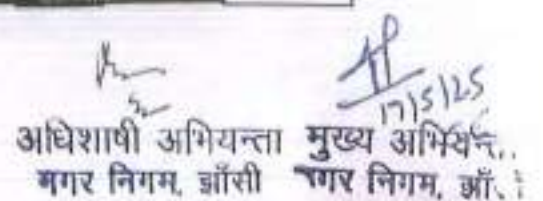 17/5/25
अधिशाषी अभियन्ता मुख्य
नगर निगम, झाँसी नगर निगम,